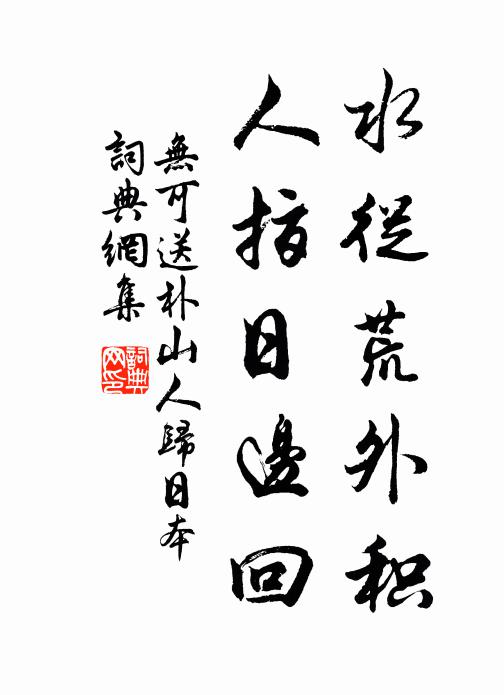 水從荒外积
人指日邊回
無可送朴山人歸日本
詞典網集
詞典网印